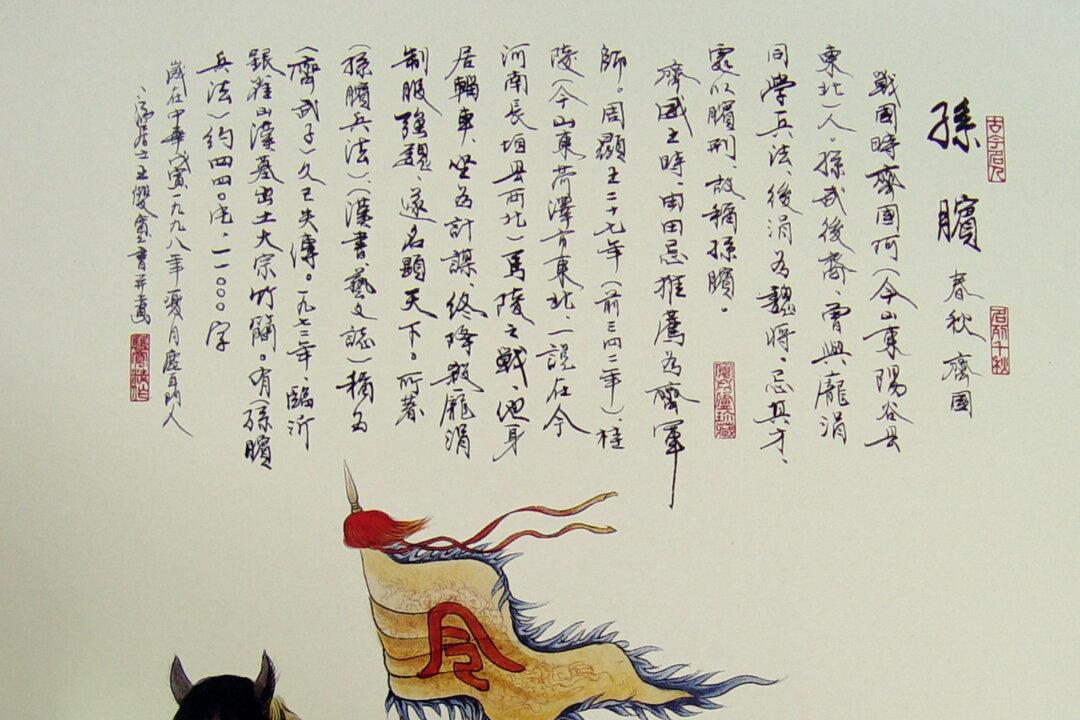 古今名人
孫臏 春秋齊國
名列千秋
戰國時齊國阿(今山東陽谷县
東北)人。孫武後裔、曾與龐涓
同學兵法、後涓為魏將、忌其才、
處以臏刑、故稱孫臏。
齊威王時、由田忌推薦為齊軍
師。周顯王二十七年(前三四二年)、桂
陵(今山東菏澤市東北、一說在今
河南長垣县西北)馬陵之戰、他身
居輜車、坐為計謀、終降殺龐涓
制服強魏、遂名顯天下。所著
(孫臏兵法)、(漢書、藝文誌)稱為
(齊武子)久已失傳。一九七二年臨沂
銀雀山漢墓出土大宗竹簡。有(孫臏
兵法)約四四〇片、一一〇〇〇字
歲在中華戊寅一九九八年夏月鹿耳門人
居士王雙寬書并畫
令